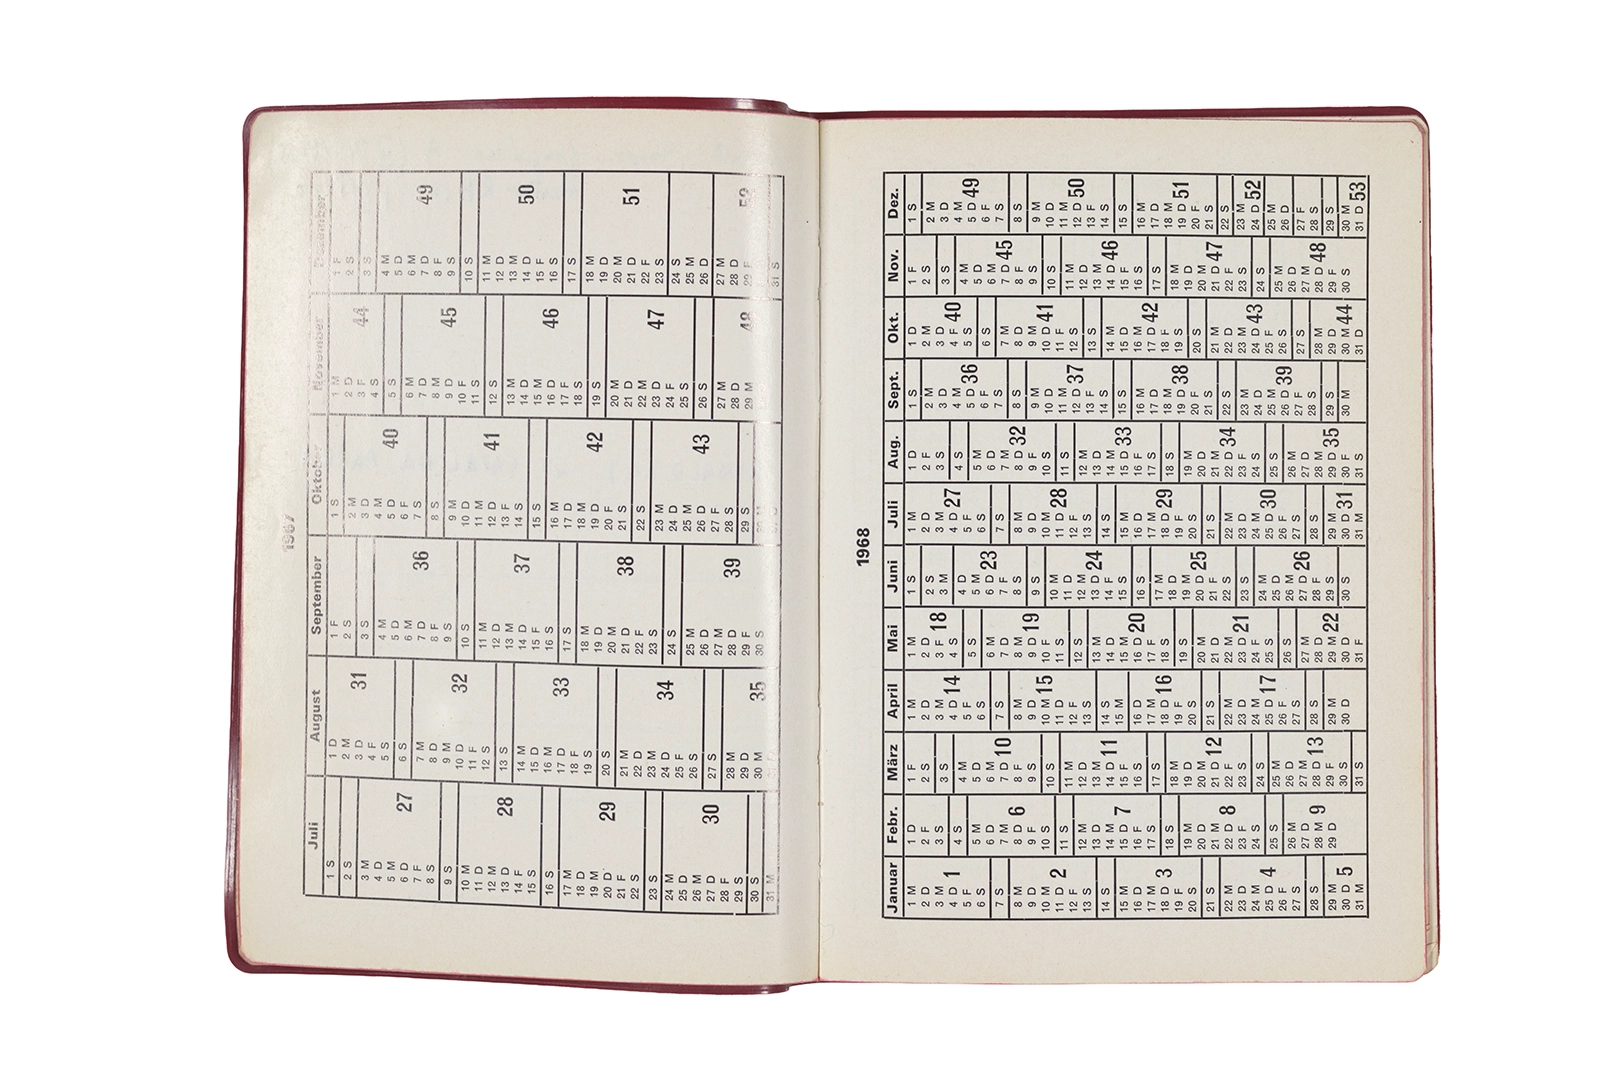 1967
Juli August September Oktober November Dezember
1 S 1 D 1 F 1 S 1 M 1 F
2 S 2 M 2 S 2 M 2 D 2 S
3 M 3 D 31 3 S 3 D 3 F 44 3 S
4 D 4 F 4 M 4 M 4 S 4 M
5 M 5 S 5 D 5 D 40 5 S 5 D
6 D 27 6 S 6 M 6 F 6 M 6 M
7 F 7 M 7 D 36 7 S 7 D 7 D 49
8 S 8 D 8 F 8 S 8 M 8 F
9 S 9 M 9 S 9 M 9 D 45 9 S
10 M 10 D 32 10 S 10 D 10 F 10 S
11 D 11 F 11 M 11 M 11 S 11 M
12 M 12 S 12 D 12 D 41 12 S 12 D
13 D 28 13 S 13 M 13 F 13 M 13 M
14 F 14 M 14 D 37 14 S 14 D 14 D 50
15 S 15 D 15 F 15 S 15 M 15 F
16 S 16 M 16 S 16 M 16 D 46 16 S
17 M 17 D 33 17 S 17 D 17 F 17 S
18 D 18 F 18 M 18 M 18 S 18 M
19 M 19 S 19 D 19 D 42 19 S 19 D
20 D 29 20 S 20 M 20 F 20 M 20 M
21 F 21 M 21 D 38 21 S 21 D 21 D 51
22 S 22 D 22 F 22 S 22 M 22 F
23 S 23 M 23 S 23 M 23 D 47 23 S
24 M 24 D 34 24 S 24 D 24 F 24 S
25 D 25 F 25 M 25 M 25 S 25 M
26 M 26 S 26 D 26 D 43 26 S 26 D
27 D 30 27 S 27 M 27 F 27 M 27 M
28 F 28 M 28 D 39 28 S 28 D 28 D 52
29 S 29 D 29 F 29 S 29 M 48 29 F
30 S 30 M 35 30 S 30 M
31 M 31 S
1968
Januar Febr. März April Mai Juni Juli Aug. Sept. Okt. Nov. Dez.
1 M 1 D 1 F 1 M 1 M 1 S 1 M 1 D 1 S 1 D 1 F 1 S
2 D 2 F 2 S 2 D 2 D 2 S 2 D 2 F 2 M 2 M 2 S 2 M
3 M 3 S 3 S 3 M 3 F 18 3 M 3 M 3 S 3 D 3 D 3 S 3 D
4 D 1 4 S 4 M 4 D 14 4 S 4 D 4 D 27 4 S 4 M 4 F 40 4 M 4 M
5 F 5 M 5 D 5 F 5 S 5 M 5 F 5 M 5 D 36 5 S 5 D 5 D 49
6 S 6 D 6 M 6 S 6 M 6 D 23 6 S 6 D 6 F 6 S 6 M 6 F
7 S 7 M 7 D 10 7 S 7 D 7 F 7 S 7 M 7 S 7 M 7 D 45 7 S
8 M 8 D 6 8 F 8 M 8 M 8 S 8 M 8 D 32 8 S 8 D 8 F 8 S
9 D 9 F 9 S 9 D 9 D 19 9 S 9 D 9 F 9 M 9 M 9 S 9 M
10 M 10 S 10 S 10 M 15 10 F 10 M 10 M 10 S 10 D 10 D 41 10 S 10 D
11 D 2 11 S 11 M 11 D 11 S 11 D 11 D 28 11 S 11 M 11 F 11 M 11 M
12 F 12 M 12 D 12 F 12 S 12 M 12 F 12 M 12 D 37 12 S 12 D 12 D 50
13 S 13 D 13 M 13 S 13 M 13 D 24 13 S 13 D 13 F 13 S 13 M 13 F
14 S 14 M 14 D 11 14 S 14 D 14 F 14 S 14 M 14 S 14 M 14 D 46 14 S
15 M 15 D 7 15 F 15 M 15 M 15 S 15 M 15 D 33 15 S 15 D 15 F 15 S
16 D 16 F 16 S 16 D 16 D 20 16 S 16 D 16 F 16 M 16 M 16 S 16 M
17 M 17 S 17 S 17 M 17 F 17 M 17 M 17 S 17 D 17 D 42 17 S 17 D
18 D 3 18 S 18 M 18 D 16 18 S 18 D 18 D 29 18 S 18 M 18 F 18 M 18 M
19 F 19 M 19 D 19 F 19 S 19 M 19 F 19 M 19 D 38 19 S 19 D 19 D 51
20 S 20 D 20 M 20 S 20 M 20 D 25 20 S 20 D 20 F 20 S 20 M 20 F
21 S 21 M 21 D 12 21 S 21 D 21 F 21 S 21 M 21 S 21 M 21 D 47 21 S
22 M 22 D 8 22 F 22 M 22 M 22 S 22 M 22 D 34 22 S 22 D 22 F 22 S
23 D 23 F 23 S 23 D 23 D 21 23 S 23 D 23 F 23 M 23 M 23 S 23 M
24 M 24 S 24 S 24 M 24 F 24 M 24 M 24 S 24 D 24 D 43 24 S 24 D 52
25 D 4 25 S 25 M 25 D 17 25 S 25 D 25 D 30 25 S 25 M 25 F 25 M 25 M
26 F 26 M 26 D 26 F 26 S 26 M 26 F 26 M 26 D 39 26 S 26 D 26 D
27 S 27 D 27 M 27 S 27 M 27 D 26 27 S 27 D 27 F 27 S 27 M 27 F
28 S 28 M 9 28 D 13 28 S 28 D 28 F 28 S 28 M 28 S 28 M 28 D 48 28 S
29 M 29 D 29 F 29 M 29 M 22 29 S 29 M 29 D 35 29 S 29 D 29 F 29 S
30 D 5 30 S 30 D 30 D 30 S 30 D 31 30 F 30 M 30 M 44 30 S 30 M
31 M 31 S 31 F 31 M 31 S 31 D 31 D 53